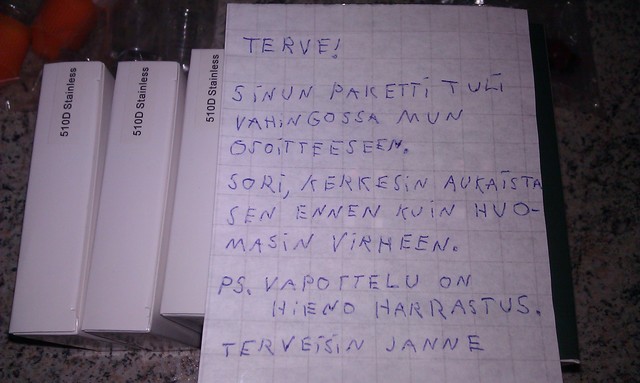 510D Stainless
510D Stainless
510D Stainless
TERVE!
SINUN PAKETTI TULI
VAHINGOSSA MUN
OSOITTEESEEN.
SORI, KERKESIN AUKAISTA
SEN ENNEN KUIN HUO-
MASIN VIRHEEN.
PS. VAPOTTELU ON
HIENO HARRASTUS.
TERVEISIN JANNE